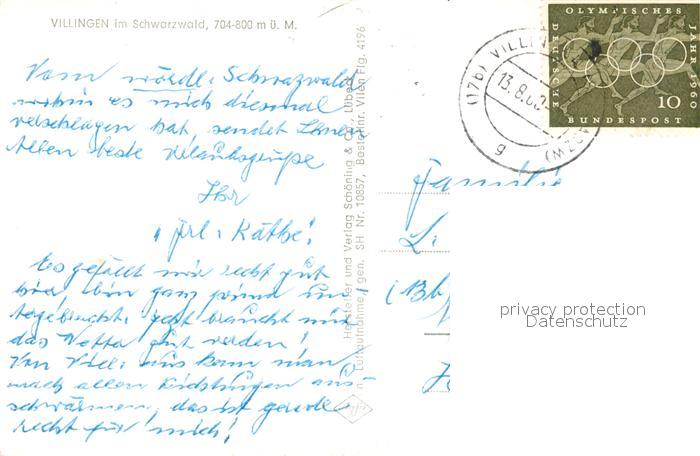 VILLINGEN im Schwarzwald, 704-800 m ü. M.
Vom nördl. Schwarzwald
wohin es mich diesmal
verschlagen hat, sendet Ihnen
Allen beste Urlaubsgrüße
Ihr
"Frl. Käthe".
Es gefällt mir recht gut
hier, bin ganz prima un-
tergebracht. Jetzt braucht nur
das Wetter gut werden!
Von Vill. aus kann man
nach allen Richtungen aus-
schwärmen, das ist gerade
recht für mich!
Hersteller und Verlag Schöning & Co., Lübeck
n. Luftaufnahme, gen. SH Nr. 10857, Bestell-Nr. Villen Flg. 4196
(17b) VILLIN
13.8.60
g
(SCHWARZW)
OLYMPISCHES JAHR 1960
DEUTSCHE BUNDESPOST
10
Familie
L
(Bb
privacy protection
Datenschutz